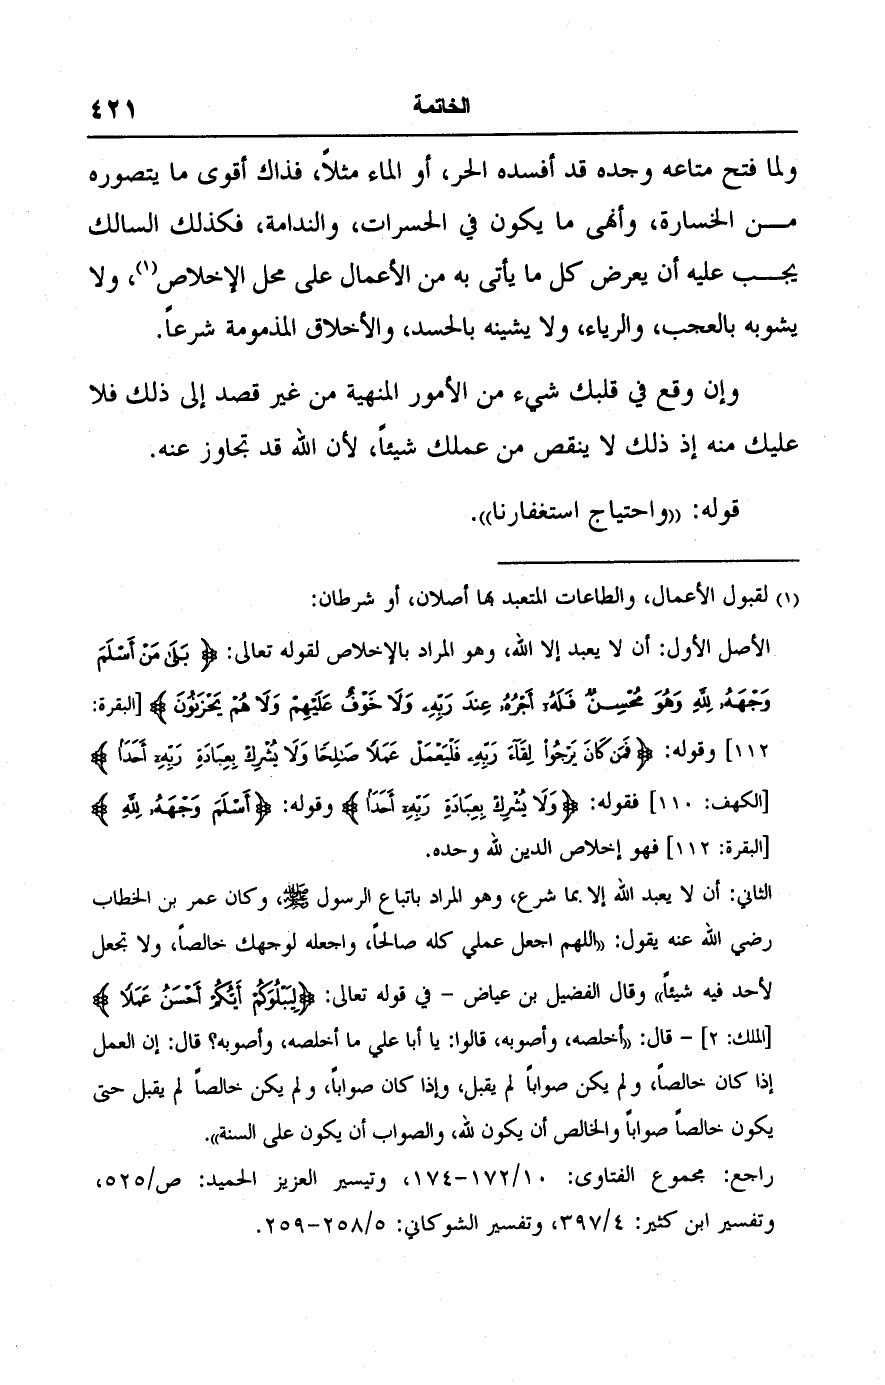 الخاتمة ٤٢١
ولما فتح متاعه وحده قد أفسده الحر، أو الماء مثلاً، فذاك أقوى ما يتصوره
مـــن الخسارة، وأنهى ما يكون في الحسرات، والندامة، فكذلك السالك
يجـــب عليه أن يعرض كل ما يأتى به من الأعمال على محل الإخلاص(١)، ولا
يشوبه بالعجب، والرياء، ولا يشينه بالحسد، والأخلاق المذمومة شرعاً.
وإن وقع في قلبك شيء من الأمور المنهية من غير قصد إلى ذلك فلا
عليك منه إذ ذلك لا ينقص من عملك شيئاً، لأن الله قد تجاوز عنه.
قوله: ((واحتياج استغفارنا)).
(١) لقبول الأعمال، والطاعات المتعبد بها أصلان، أو شرطان:
الأصل الأول: أن لا يعبد إلا الله، وهو المراد بالإخلاص لقوله تعالى: ﴿ بَلَىٰ مَنْ أَسْلَمَ
وَجْهَهُۥ لِلَّهِ وَهُوَ مُحْسِنٌ فَلَهُۥٓ أَجْرُهُۥ عِندَ رَبِّهِۦ وَلَا خَوْفٌ عَلَيْهِمْ وَلَا هُمْ يَحْزَنُونَ ﴾ [البقرة:
١١٢] وقوله: ﴿ فَمَن كَانَ يَرْجُوا۟ لِقَآءَ رَبِّهِۦ فَلْيَعْمَلْ عَمَلًا صَـٰلِحًا وَلَا يُشْرِكْ بِعِبَادَةِ رَبِّهِۦٓ أَحَدًا ﴾
[الكهف: ١١٠] فقوله: ﴿ وَلَا يُشْرِكْ بِعِبَادَةِ رَبِّهِۦٓ أَحَدًا ﴾ وقوله: ﴿ أَسْلَمَ وَجْهَهُۥ لِلَّهِ ﴾
[البقرة: ١١٢] فهو إخلاص الدين لله وحده.
الثاني: أن لا يعبد الله إلا بما شرع، وهو المراد باتباع الرسول ﷺ، وكان عمر بن الخطاب
رضي الله عنه يقول: ((اللهم اجعل عملي كله صالحاً، واجعله لوجهك خالصاً، ولا تجعل
لأحد فيه شيئاً)) وقال الفضيل بن عياض - في قوله تعالى: ﴿ لِيَبْلُوَكُمْ أَيُّكُمْ أَحْسَنُ عَمَلًا ﴾
[الملك: ٢] - قال: ((أخلصه، وأصوبه، قالوا: يا أبا علي ما أخلصه، وأصوبه؟ قال: إن العمل
إذا كان خالصاً، ولم يكن صواباً لم يقبل، وإذا كان صواباً، ولم يكن خالصاً لم يقبل حتى
يكون خالصاً صواباً والخالص أن يكون لله، والصواب أن يكون على السنة)).
راجع: مجموع الفتاوى: ١٧٢/١٠-١٧٤، وتيسير العزيز الحميد: ص/٥٢٥،
وتفسير ابن كثير: ٣٩٧/٤، وتفسير الشوكاني: ٢٥٨/٥-٢٥٩.